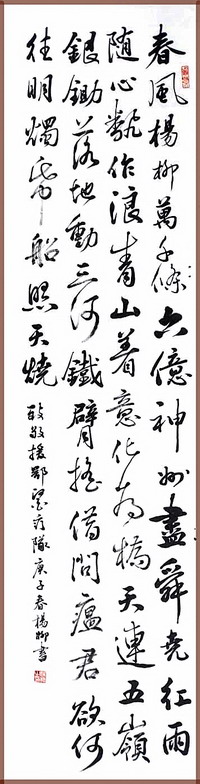 春風楊柳萬千條六億神州盡舜堯紅雨
随心翻作浪青山着意化为橋天連五嶺
銀鋤落地動三河鐵臂搖借問瘟君欲何
往明燭帋船照天燒
致敬援鄂醫疗隊庚子春楊柳書